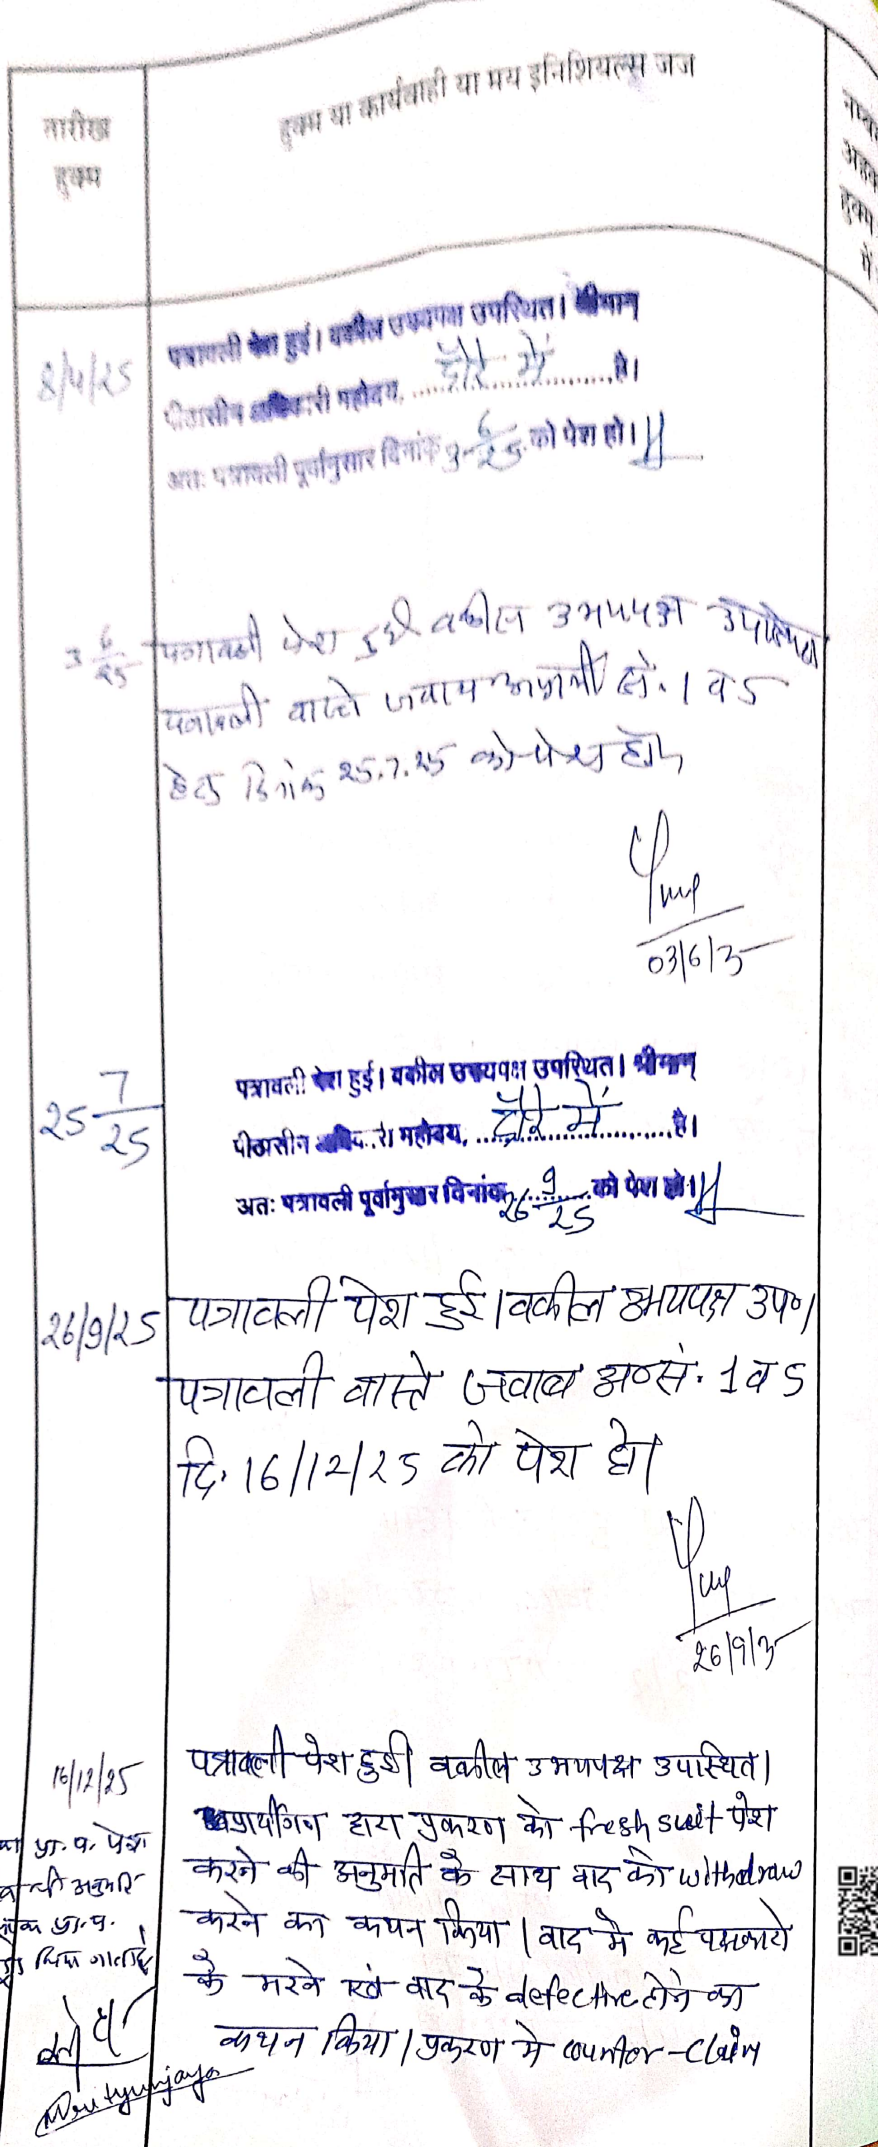 तारीख
हुक्म
हुक्म या कार्यवाही या मय इनिशियल्स जज
हुक्म
में
8/4/25
पत्रावली पेश हुई। वकील उभयपक्ष उपस्थित। श्रीमान्
पीठासीन अधिकारी महोदय, दौरे में है।
अतः पत्रावली पूर्वानुसार दिनांक 3-6/25 को पेश हो।
3 6/25
पत्रावली पेश हुई वकील उभयपक्ष उपस्थित
पत्रावली वास्ते जवाब अप्रार्थी सं. 1 व 5
हेतु दिनांक 25.7.25 को पेश हो।
03/6/25
25 7/25
पत्रावली पेश हुई। वकील उभयपक्ष उपस्थित। श्रीमान्
पीठासीन अधिकारी महोदय, दौरे में है।
अतः पत्रावली पूर्वानुसार दिनांक 26 9/25 को पेश हो।
26/9/25
पत्रावली पेश हुई। वकील उभयपक्ष उप०।
पत्रावली वास्ते जवाब अ०सं. 1 व 5
दि. 16/12/25 को पेश हो।
26/9/25
16/12/25
पत्रावली पेश हुई। वकील उभयपक्ष उपस्थित।
प्रार्थीगण द्वारा प्रकरण को fresh suit पेश
करने की अनुमति के साथ वाद को withdraw
करने का कथन किया। वाद में कई पक्षकारो
के मरने एवं वाद के defective होने का
कथन किया। प्रकरण में counter-claim
प्रा. प. पेश
की अनुमति
प्रा.प.
Mrityunjaya